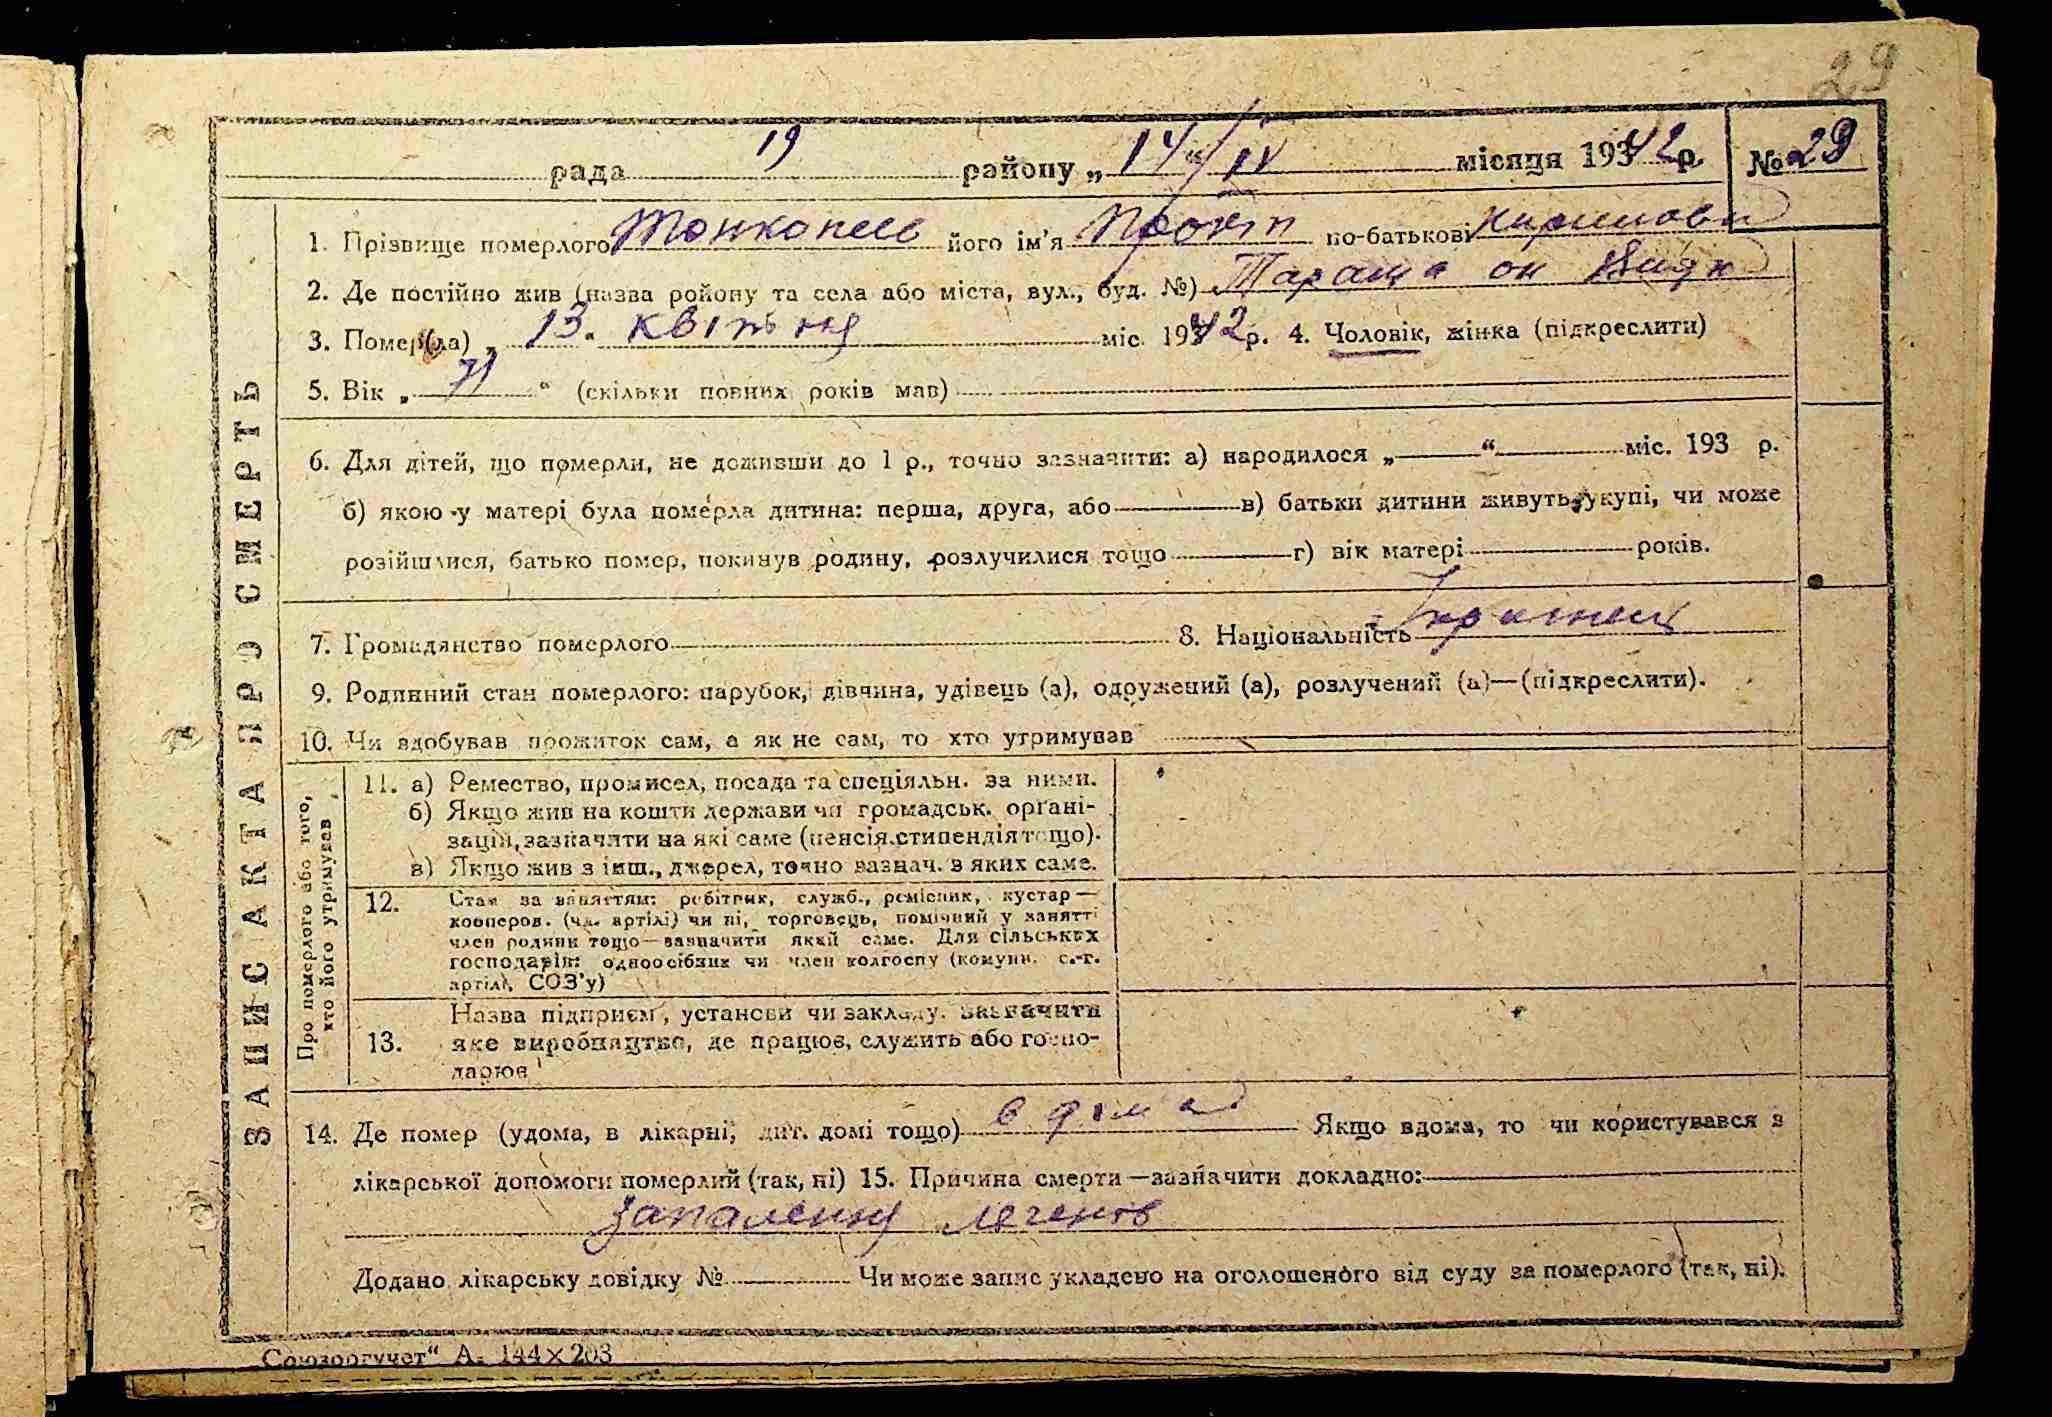 29
рада 19 району „14“ IV місяця 1942 р. № 29
1. Прізвище померлого його ім'я по-батькові
2. Де постійно жив (назва ройону та села або міста, вул., буд. №) Тараща
3. Помер(ла) „13“ квітня міс. 1942 р. 4. Чоловік, жінка (підкреслити)
5. Вік „71“ (скільки повних років мав)
6. Для дітей, що померли, не доживши до 1 р., точно зазначити: а) народилося „ “ міс. 193 р.
б) якою у матері була померла дитина: перша, друга, або в) батьки дитини живуть укупі, чи може
розійшлися, батько помер, покинув родину, розлучилися тощо г) вік матері років.
7. Громадянство померлого 8. Національність
9. Родинний стан померлого: парубок, дівчина, удівець (а), одружений (а), розлучений (а)—(підкреслити).
10. Чи здобував прожиток сам, а як не сам, то хто утримував
ЗАПИС АКТА ПРО СМЕРТЬ
Про померлого або того, хто його утримував
11. а) Ремество, промисел, посада та спеціяльн. за ними.
б) Якщо жив на кошти держави чи громадськ. органі-
зацій, зазначити на які саме (пенсія, стипендія тощо).
в) Якщо жив з інш., джерел, точно вазнач. з яких саме.
12. Стан за заняттям: робітник, служб., ремісник, кустар—
кооперов. (чл. артілі) чи ні, торговець, помічний у занятті
член родини тощо—зазначити який саме. Для сільських
господарів: одноосібник чи член колгоспу (комуни, с.-г.
артілі, СОЗ'у)
13. Назва підприєм, установи чи закладу. зазначити
яке виробництво, де працює, служить або госпо-
дарює
14. Де помер (удома, в лікарні, дит. домі тощо) в дома Якщо вдома, то чи користувався з
лікарської допомоги померлий (так, ні) 15. Причина смерти—зазначити докладно:
запалення легенів
Додано лікарську довідку № Чи може запис укладено на оголошеного від суду за померлого (так, ні).
„Союзоргучет“ А. 144×203